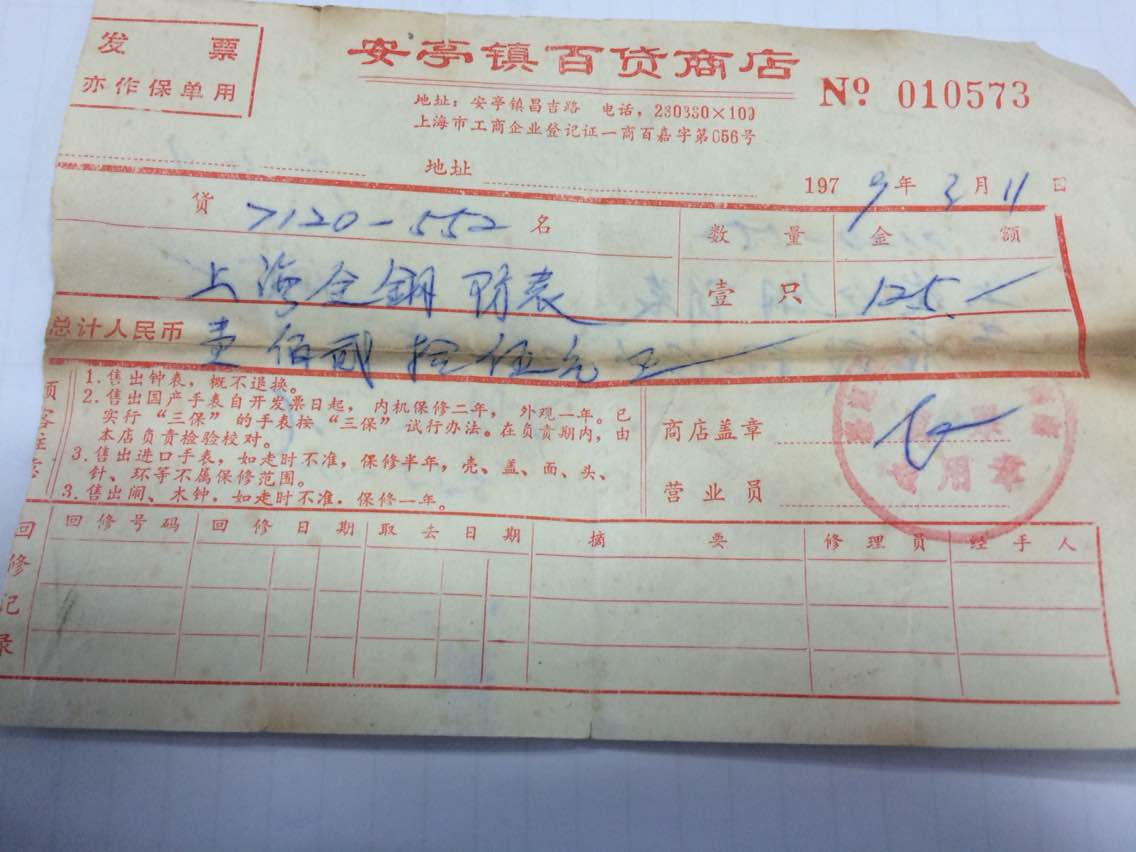 发票
亦作保单用
安亭镇百货商店
№ 010573
地址：安亭镇昌吉路 电话，230330×109
上海市工商企业登记证一商百嘉字第056号
地址
1979年3月11日
货 7120-552 名 数量 金额
上海全钢防表 壹只 125.
总计人民币 壹佰贰拾伍元正
1. 售出钟表，概不退换。
2. 售出国产手表自开发票日起，内机保修二年，外观一年。已
实行“三保”的手表按“三保”试行办法。在负责期内，由
本店负责检验校对。
3. 售出进口手表，如走时不准，保修半年，壳、盖、面、头、
针、环等不属保修范围。
3. 售出闹、木钟，如走时不准，保修一年。
商店盖章
营业员
专用章
回修记录
回修号码 回修日期 取去日期 摘要 修理员 经手人